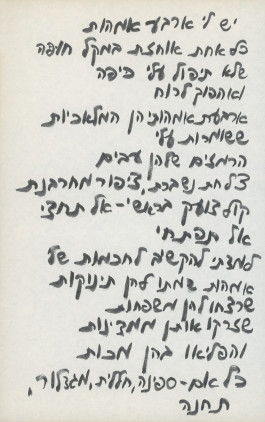 יש לי ארבע אמהות
כל אחת אוחזת במקל חופה
שלא תיפול עלי כיפה
ואהפוך לרוח
ארבעת אמהותי הן המלאכיות
ששומרות עלי
הרמזים שלהן עבים
צלחת נשברת, ציפור מחרבנת
קול צועק בראשי - אל תחצי
אל תפתחי
למדתי להקשיב לחכמות של
אמהות שמתו להן תינוקות
שרצחו להן משפחות
שזרקו אותן ממדינות
והפליאו בהן מכות
כל אם - ספינה, חללית, מגדלור,
תחנה